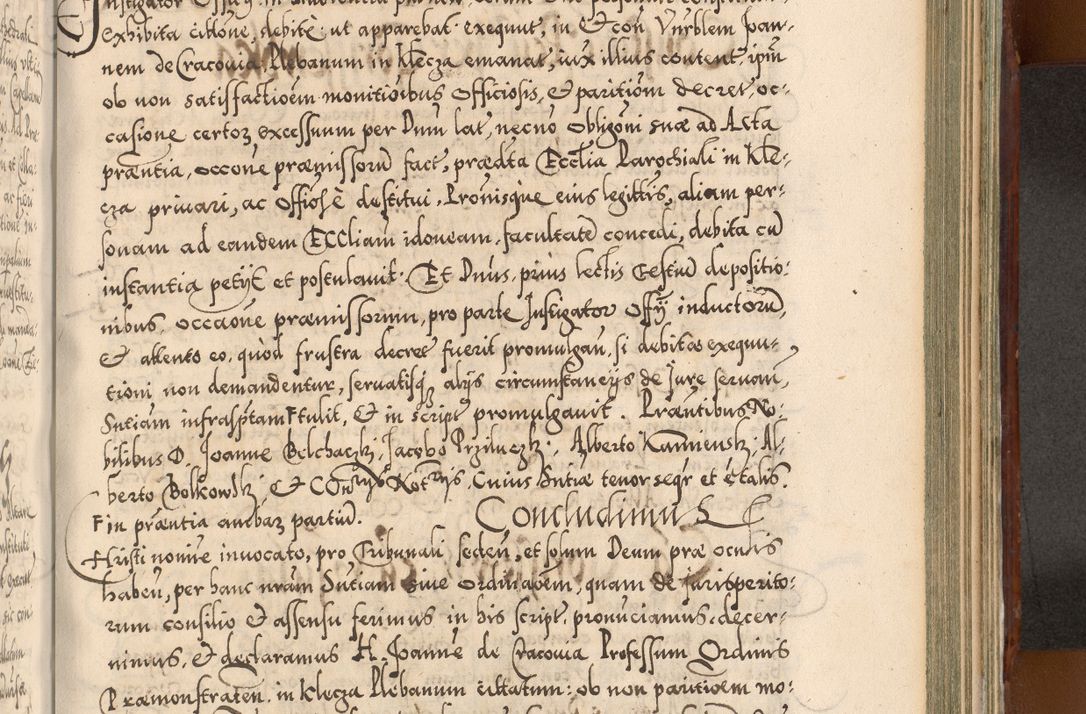 exhibita citône, debitè, ut apparebat exequut, in et con Vnrblem Joan-
nem de Cracouia Plebanum in Klecza emanat, uix illius content, ipm
ob non satisfactioem monitioibus officiosis, et paritiom decret, oc-
casione certoz excessuum per Dnm lat, necnò obligoni suæ ad Acta
præntia, occone præmissorū fact, prædta Ecclia Parochiali in Kle-
cza priuari, ac offiosè destitui, Pronisque eius legittis, aliam per-
sonam ad eandem ECCliam idoneam, facultatē concedi, debita cū
instantia petijt et postulauit. Et Dnus, prius lectis testiū depositio-
nibus, occaone præmissorum, pro parte Instigator Offij inductorū,
et attento eo, quòd frustra decret fuerit promulgaū, si debitæ exequu-
tioni non demandentur, seruatisqz alijs circumstancijs de Jure seruan,
Sntiam infrasptam Ftulit, et in script promulgauit. Præntibus No-
bilibus D. Joanne Belchaczki, Jacobo Przilueczki, Alberto Kamienski, Al-
berto Bolkowski, et Notrijs. Cuius Sntiæ tenor seqr et e talis.
F in præntia ambaz partiū. Concludimus
Christi nomine inuocato, pro Tribunali seden, et solum Deum præ oculis
haben, per hanc nram Sntiam siue ordinaoem, quam de Jurisperito-
rum consilio et assensu ferimus in his script, pronuciamus, decer-
nimus, et declaramus H. Joanne de Cracouia Professum Ordinis
Præmonstraten, in Klecza Plebanum citatum: ob non paritioem mo-